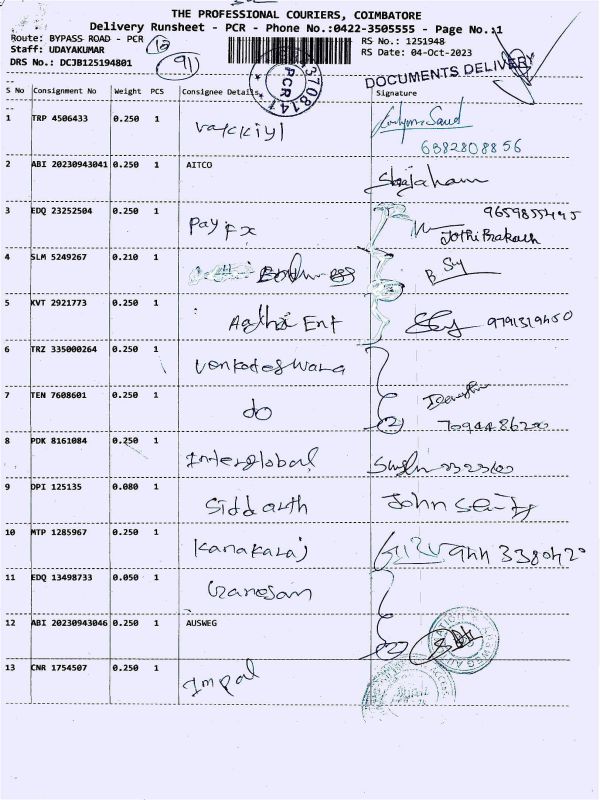 THE PROFESSIONAL COURIERS, COIMBATORE
Delivery Runsheet - PCR - Phone No.:0422-3505555 - Page No.:1
Route: BYPASS ROAD - PCR
RS No.: 1251948
Staff: UDAYAKUMAR
RS Date: 04-Oct-2023
DRS No.: DCJB125194801
91
PCR
DOCUMENTS DELIVERY
S No Consignment No Weight PCS Consignee Details Signature
1 TRP 4506433 0.250 1 Vakkiyl
6382808856
2 ABI 20230943041 0.250 1 AITCO
3 EDQ 23252504 0.250 1 Pay Fx
Jothi Prakash
4 SLM 5249267 0.210 1
5 KVT 2921773 0.250 1 Ent 9791319450
6 TRZ 335000264 0.250 1 Venkateswara
7 TEN 7608601 0.250 1 do
(2) 7094486200
8 PDK 8161084 0.250 1 Interglobal
9 DPI 125135 0.080 1 Siddarth John
10 MTP 1285967 0.250 1 Kanakaraj
11 EDQ 13498733 0.050 1 Ganesan
12 ABI 20230943046 0.250 1 AUSWEG (2)
13 CNR 1754507 0.250 1 Impal